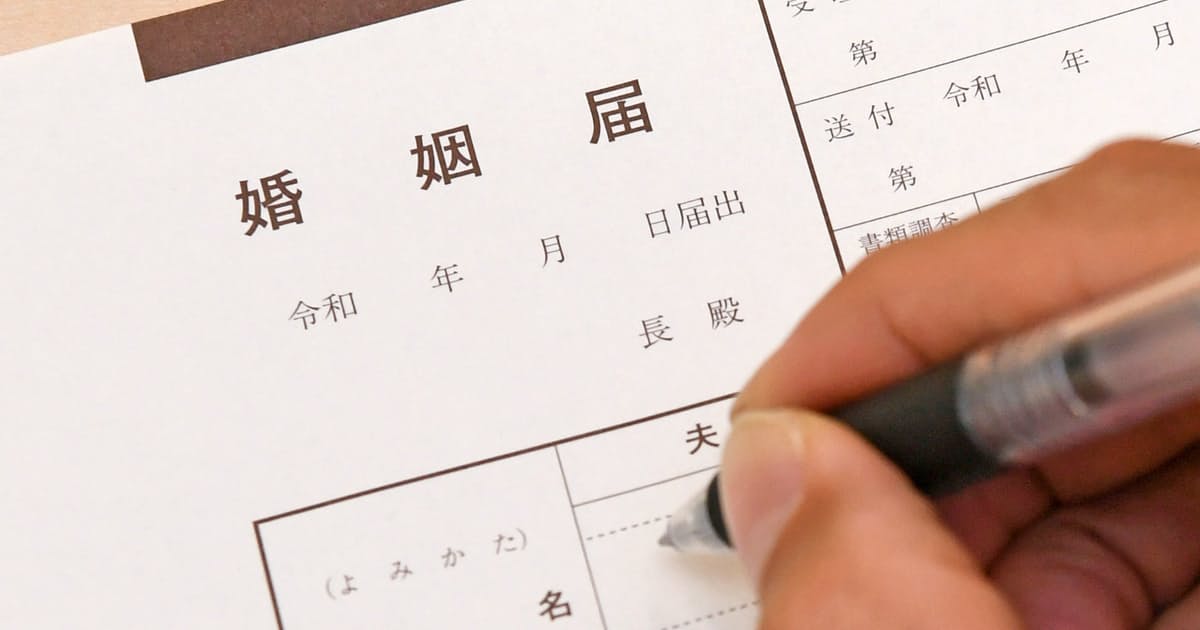 婚姻届
令和 年 月 日届出
長 殿
第
送付 令和 年 月
第
書類調査
夫
(よみかた)
名